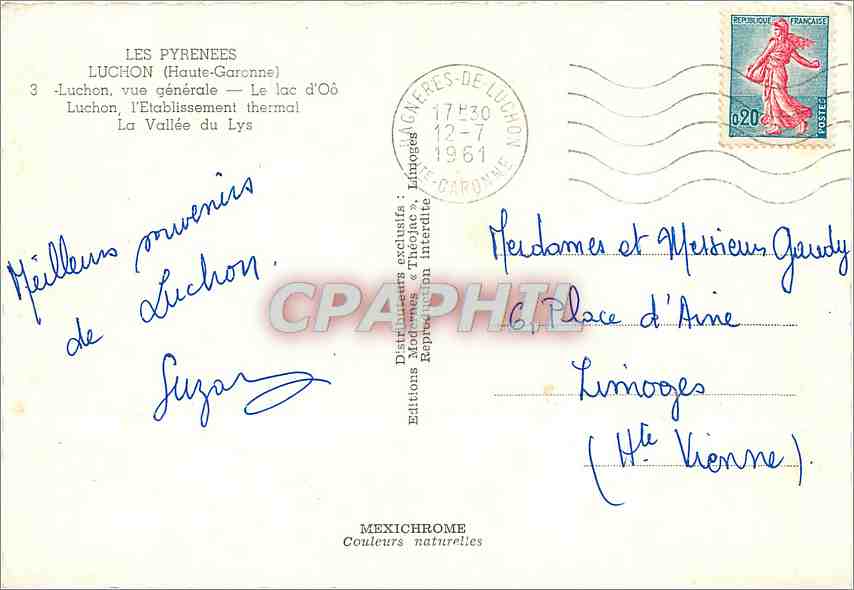 LES PYRENEES
LUCHON (Haute-Garonne)
3 -Luchon, vue générale — Le lac d'Oô
Luchon, l'Etablissement thermal
La Vallée du Lys
BAGNERES-DE-LUCHON
17H30
12-7
1961
HTE-GARONNE
REPUBLIQUE FRANÇAISE
0,20
POSTES
Meilleurs souvenirs
de Luchon.
Suzan
Distributeurs exclusifs :
Editions Modernes « Théojac », Limoges
Reproduction interdite
Mesdames et Messieurs Gaudy
6, Place d'Aine
Limoges
(Hte Vienne).
CPAPHIL
MEXICHROME
Couleurs naturelles